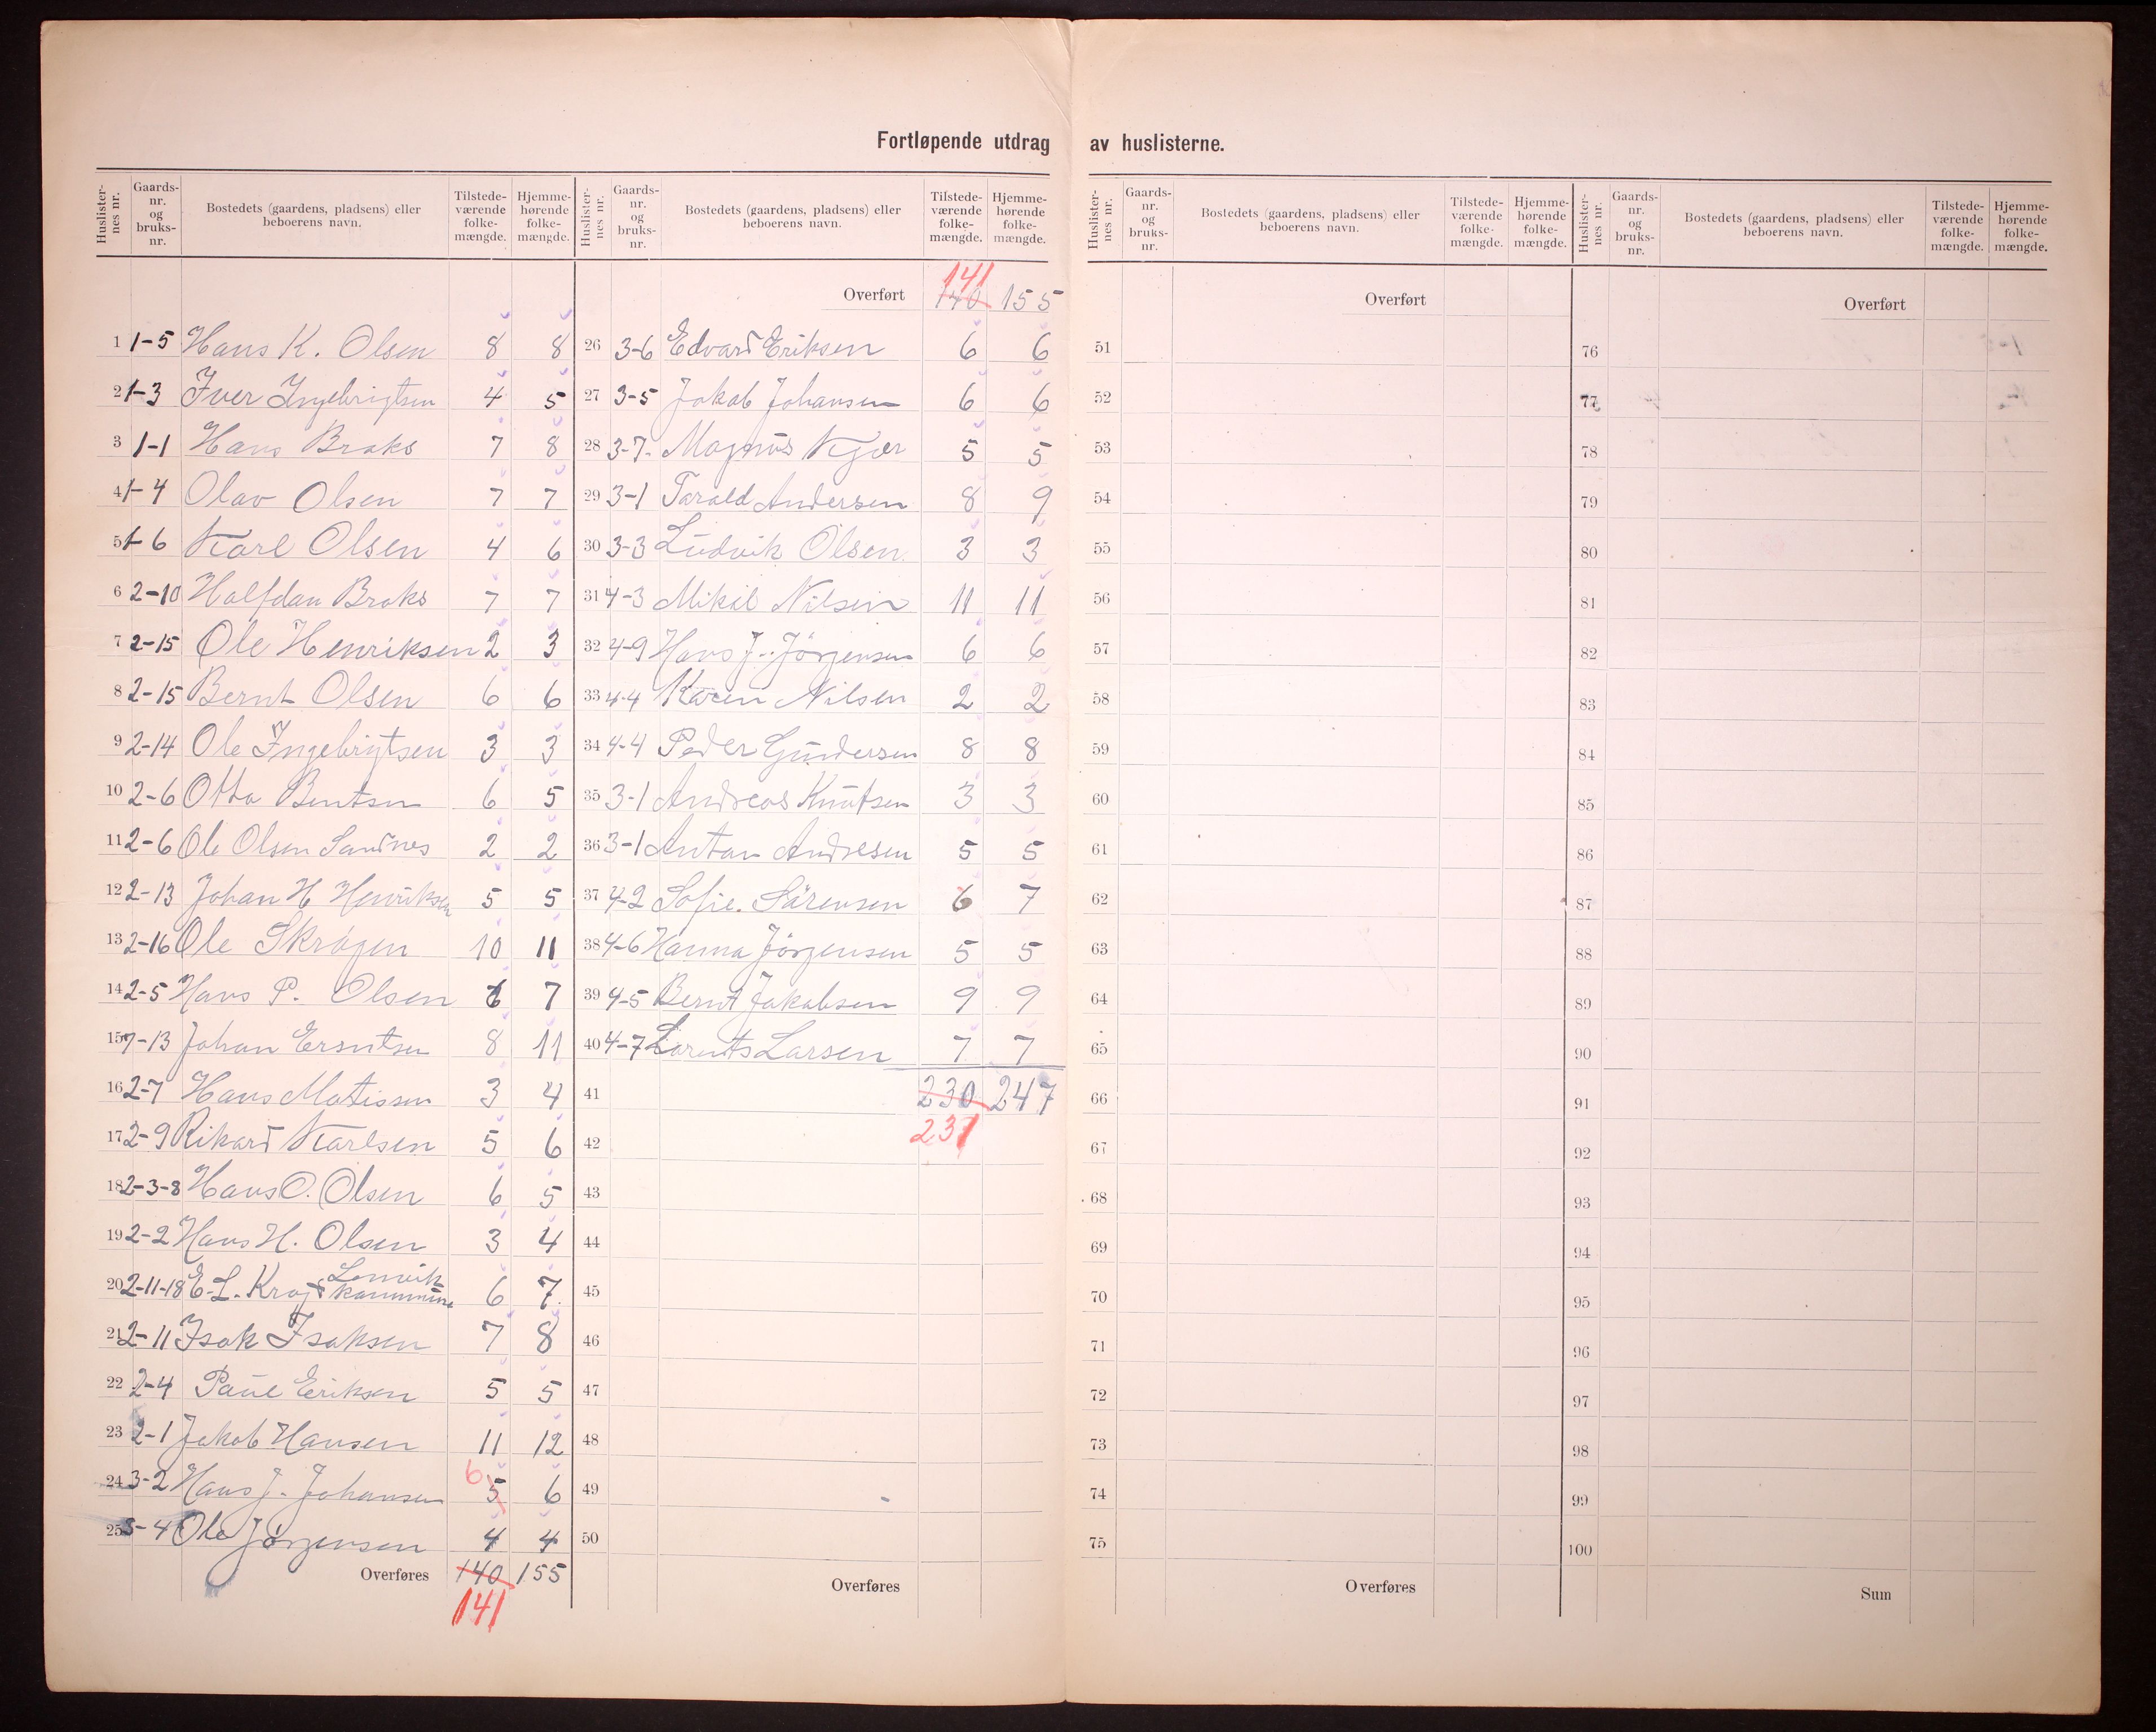 Fortløpende utdrag av huslisterne.
Huslisternes nr. Gaards-nr. og bruks-nr. Bostedets (gaardens, pladsens) eller beboerens navn. Tilstedeværende folkemængde. Hjemmehørende folkemængde.
1 1-5 Hans K. Olsen 8 8
2 1-3 Iver Ingebrigtsen 4 5
3 1-1 Hans Braks 7 8
4 1-4 Olav Olsen 7 7
5 1-6 Karl Olsen 4 6
6 2-10 Halfdan Braks 7 7
7 2-15 Ole Henriksen 2 3
8 2-15 Bernt Olsen 6 6
9 2-14 Ole Ingebrigtsen 3 3
10 2-6 Otto Bentsen 6 5
11 2-6 Ole Olsen Sandnes 2 2
12 2-13 Johan H Henriksen 5 5
13 2-16 Ole Skrogen 10 11
14 2-5 Hans P. Olsen 6 7
15 7-13 Johan Ersntsen 8 11
16 2-7 Hans Matissen 3 4
17 2-9 Rikard Karlsen 5 6
18 2-3-8 Hans O. Olsen 6 5
19 2-2 Hans H. Olsen 3 4
20 2-11-18 E. L. Krog Lenvik kommune 6 7
21 2-11 Isak Isaksen 7 8
22 2-4 Paul Eriksen 5 5
23 2-1 Jakob Hansen 11 12
24 3-2 Hans J. Johansen 5 6 6
25 3-4 Ole Jörgensen 4 4
Overføres 140 155
141
Huslisternes nr. Gaards-nr. og bruks-nr. Bostedets (gaardens, pladsens) eller beboerens navn. Tilstedeværende folkemængde. Hjemmehørende folkemængde.
141
Overført 140 155
26 3-6 Edvard Eriksen 6 6
27 3-5 Jakob Johansen 6 6
28 3-7. Magnus Kjær 5 5
29 3-1 Tarald Andersen 8 9
30 3-3 Ludvik Olsen 3 3
31 4-3 Mikal Nilsen 11 11
32 4-9 Hans J. Jörgensen 6 6
33 4-4 Karen Nilsen 2 2
34 4-4 Peder Gundersen 8 8
35 3-1 Andreas Knutsen 3 3
36 3-1 Antan Andresen 5 5
37 4-2 Sofie. Sörensen 6 7
38 4-6 Hanna Jörgensen 5 5
39 4-5 Bernt Jakobsen 9 9
40 4-7 Lornts Larsen 7 7
41 230 247
42 231
43
44
45
46
47
48
49
50
Overføres
Huslisternes nr. Gaards-nr. og bruks-nr. Bostedets (gaardens, pladsens) eller beboerens navn. Tilstedeværende folkemængde. Hjemmehørende folkemængde.
Overført
51
52
53
54
55
56
57
58
59
60
61
62
63
64
65
66
67
68
69
70
71
72
73
74
75
Overføres
Huslisternes nr. Gaards-nr. og bruks-nr. Bostedets (gaardens, pladsens) eller beboerens navn. Tilstedeværende folkemængde. Hjemmehørende folkemængde.
Overført
76
77
78
79
80
81
82
83
84
85
86
87
88
89
90
91
92
93
94
95
96
97
98
99
100
Sum